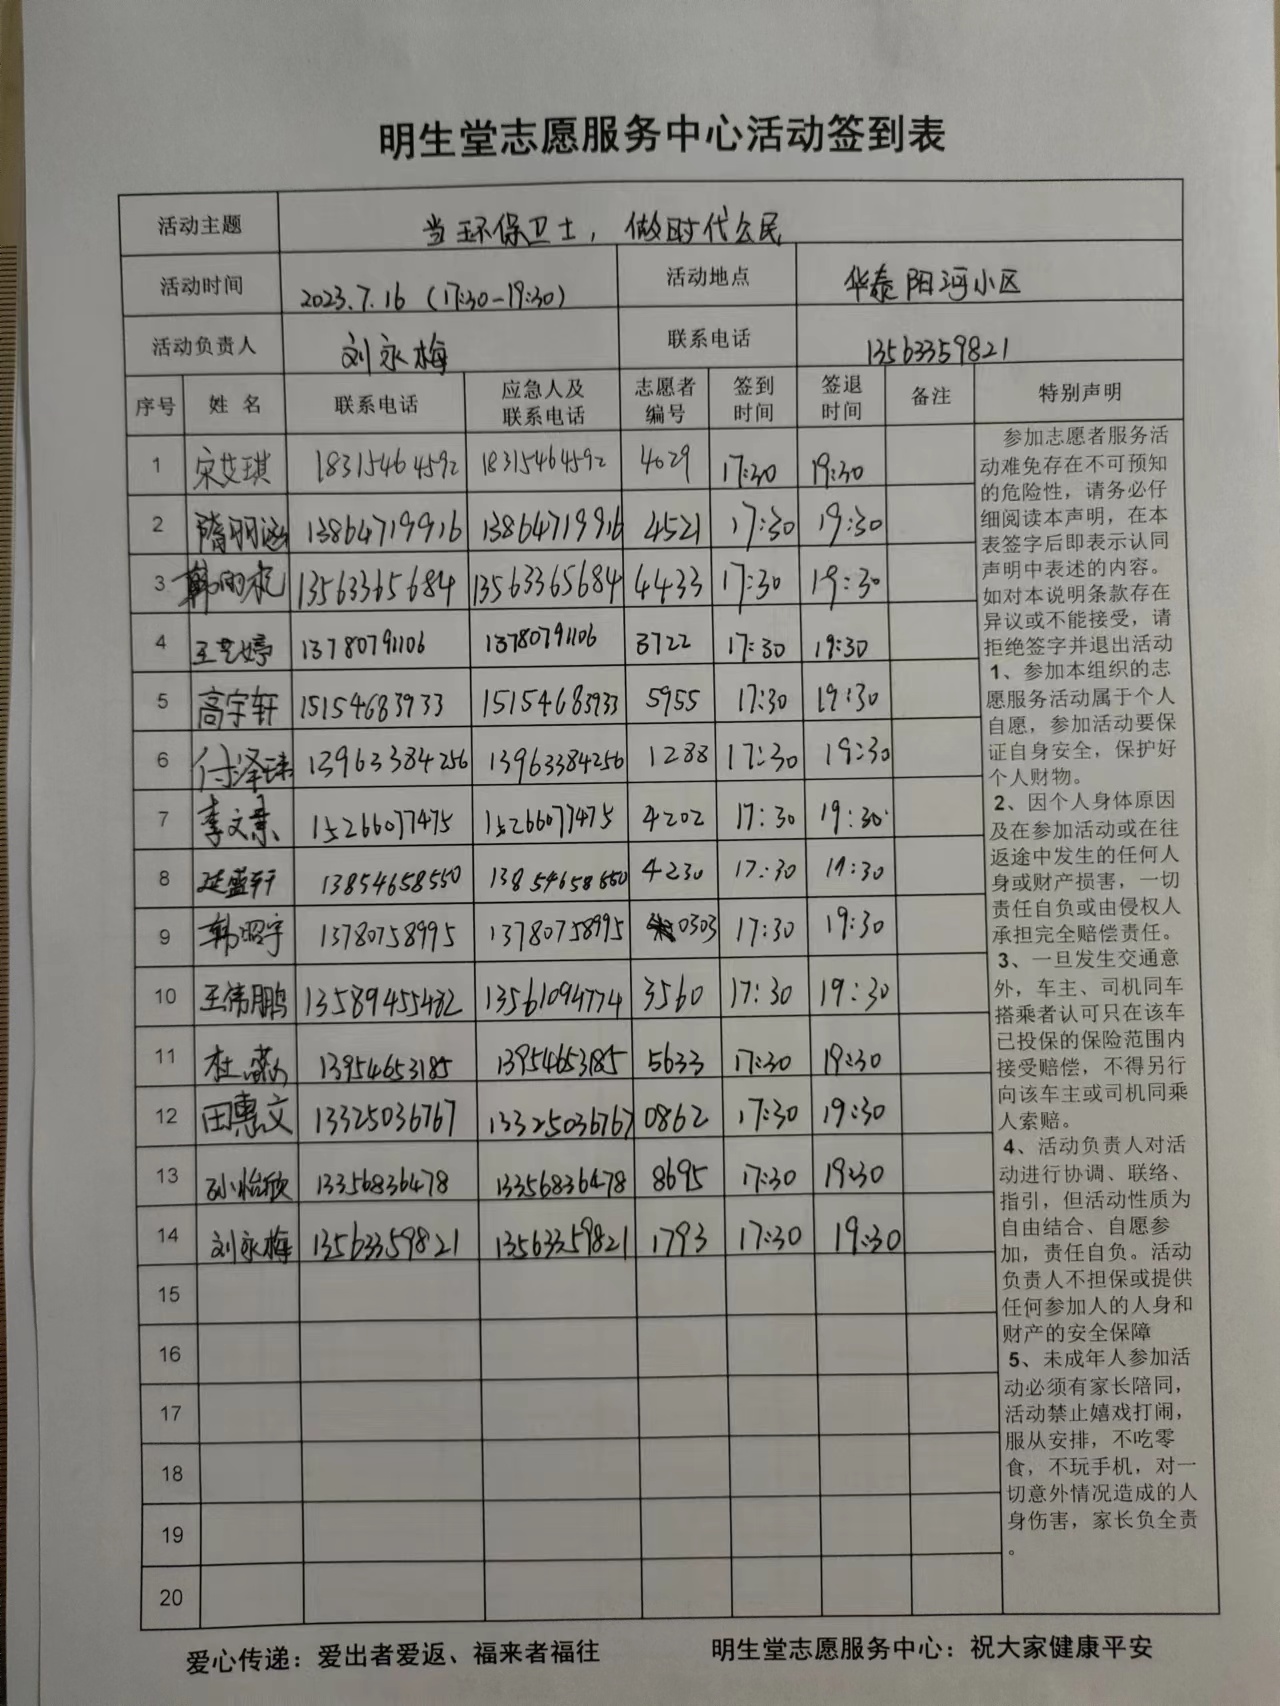 明生堂志愿服务中心活动签到表
活动主题 当环保卫士，做时代公民
活动时间 2023.7.16（17:30-19:30） 活动地点 华泰阳河小区
活动负责人 刘永梅 联系电话 13563359821
序号 姓名 联系电话 应急人及联系电话 志愿者编号 签到时间 签退时间 备注 特别声明
1 宋艾琪 18315464592 18315464592 4029 17:30 19:30
2 隋明涵 13864719916 13864719916 4521 17:30 19:30
3 韩雨 13563365684 13563365684 4433 17:30 19:30
4 王艺婷 13780791106 13780791106 3722 17:30 19:30
5 高宇轩 15154683933 15154683933 5955 17:30 19:30
6 付泽 13963384256 13963384256 1288 17:30 19:30
7 李文 15266077475 15266077475 4202 17:30 19:30
8 延盛轩 13854658550 13854658550 4230 17:30 19:30
9 韩昭宇 13780758995 13780758995 0303 17:30 19:30
10 王伟鹏 13589455482 13561094774 3560 17:30 19:30
11 杜 13954653185 13954653185 5633 17:30 19:30
12 田惠文 13325036767 13325036767 0862 17:30 19:30
13 孙怡欣 13356836478 13356836478 8695 17:30 19:30
14 刘永梅 13563359821 13563359821 1793 17:30 19:30
15
16
17
18
19
20
参加志愿者服务活
动难免存在不可预知
的危险性，请务必仔
细阅读本声明，在本
表签字后即表示认同
声明中表述的内容。
如对本说明条款存在
异议或不能接受，请
拒绝签字并退出活动
1、参加本组织的志
愿服务活动属于个人
自愿，参加活动要保
证自身安全，保护好
个人财物。
2、因个人身体原因
及在参加活动或在往
返途中发生的任何人
身或财产损害，一切
责任自负或由侵权人
承担完全赔偿责任。
3、一旦发生交通意
外，车主、司机同车
搭乘者认可只在该车
已投保的保险范围内
接受赔偿，不得另行
向该车主或司机同乘
人索赔。
4、活动负责人对活
动进行协调、联络、
指引，但活动性质为
自由结合、自愿参
加，责任自负。活动
负责人不担保或提供
任何参加人的人身和
财产的安全保障
5、未成年人参加活
动必须有家长陪同，
活动禁止嬉戏打闹，
服从安排，不吃零
食，不玩手机，对一
切意外情况造成的人
身伤害，家长负全责
。
爱心传递：爱出者爱返、福来者福往 明生堂志愿服务中心：祝大家健康平安